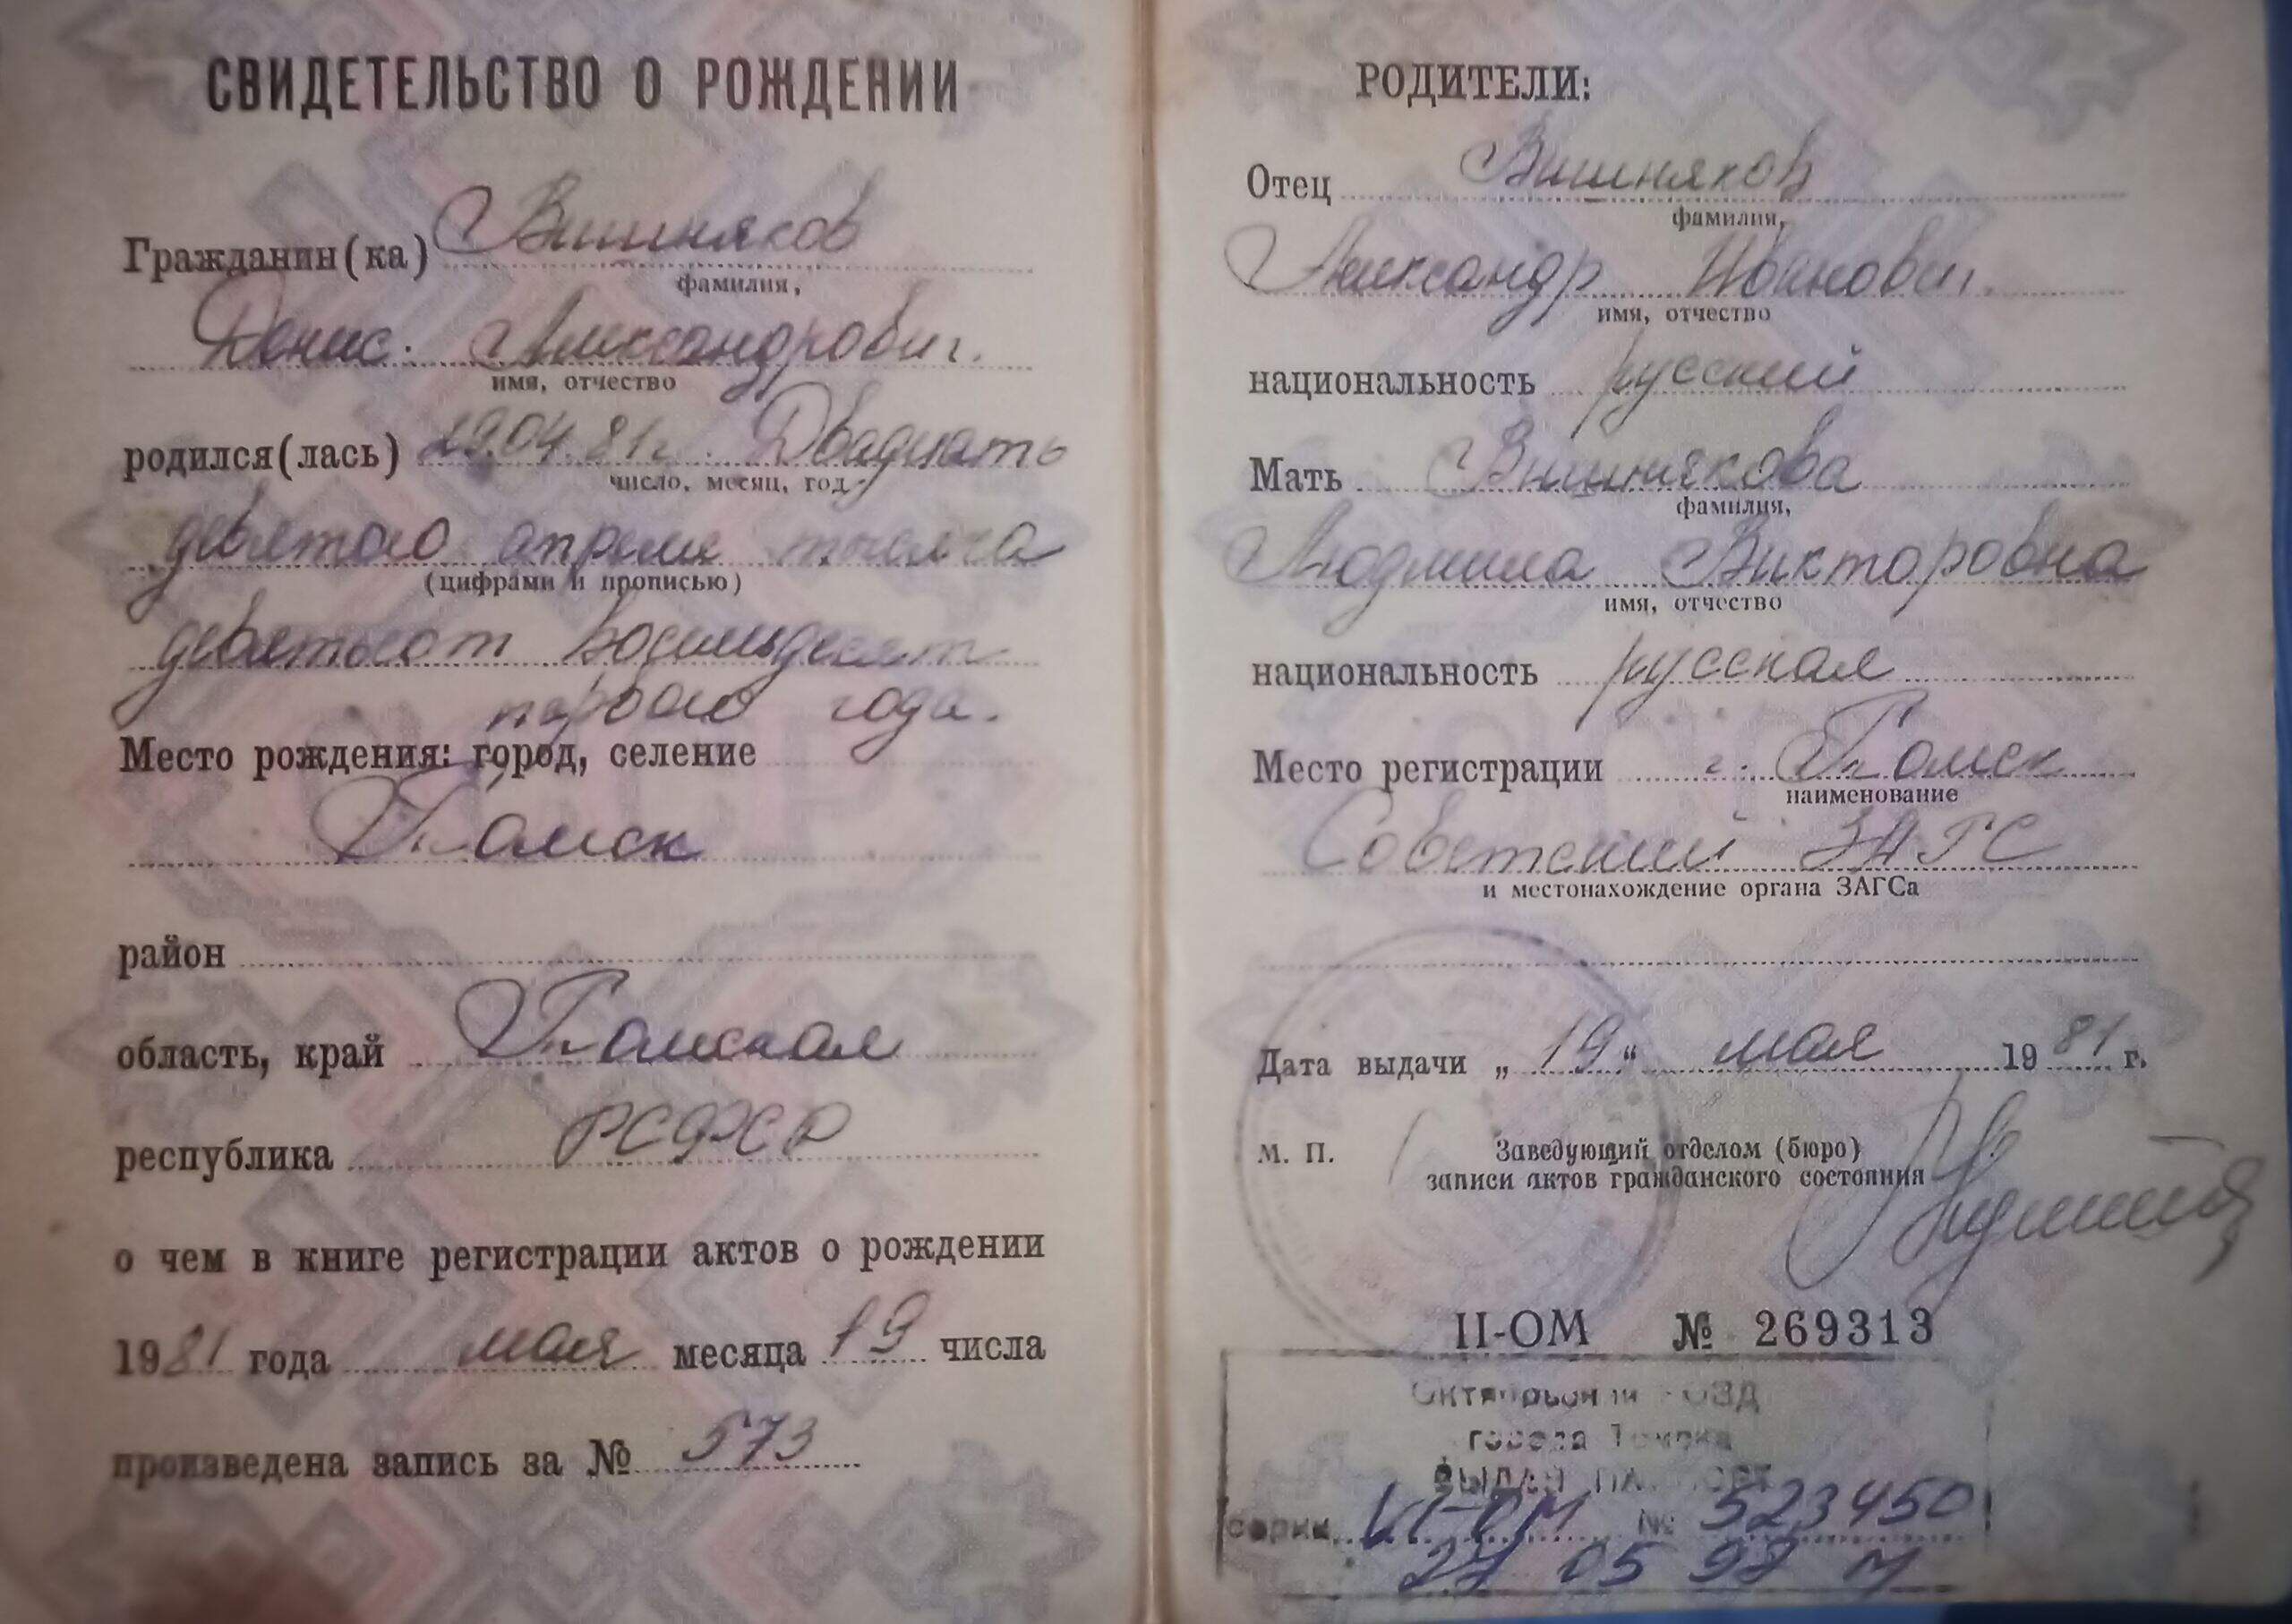 СВИДЕТЕЛЬСТВО О РОЖДЕНИИ
Гражданин(ка) Вишняков
фамилия,
Денис Александрович.
имя, отчество
родился(лась) 29.04.81г. Двадцать
число, месяц, год
девятого апреля тысяча
(цифрами и прописью)
девятьсот восемьдесят
первого года.
Место рождения: город, селение
Томск
район
область, край Томская
республика РСФСР
о чем в книге регистрации актов о рождении
1981 года мая месяца 19 числа
произведена запись за № 573
РОДИТЕЛИ:
Отец Вишняков
фамилия,
Александр Иванович.
имя, отчество
национальность русский
Мать Вишнякова
фамилия,
Людмила Викторовна
имя, отчество
национальность русская
Место регистрации г. Томск
наименование
Советский ЗАГС
и местонахождение органа ЗАГСа
Дата выдачи „19“ мая 1981 г.
М. П. Заведующий отделом (бюро)
записи актов гражданского состояния
II-ОМ № 269313
Октябрьский РОВД
города Томска
ВЫДАН ПАСПОРТ
серия VI-ОМ № 523450
27 05 98